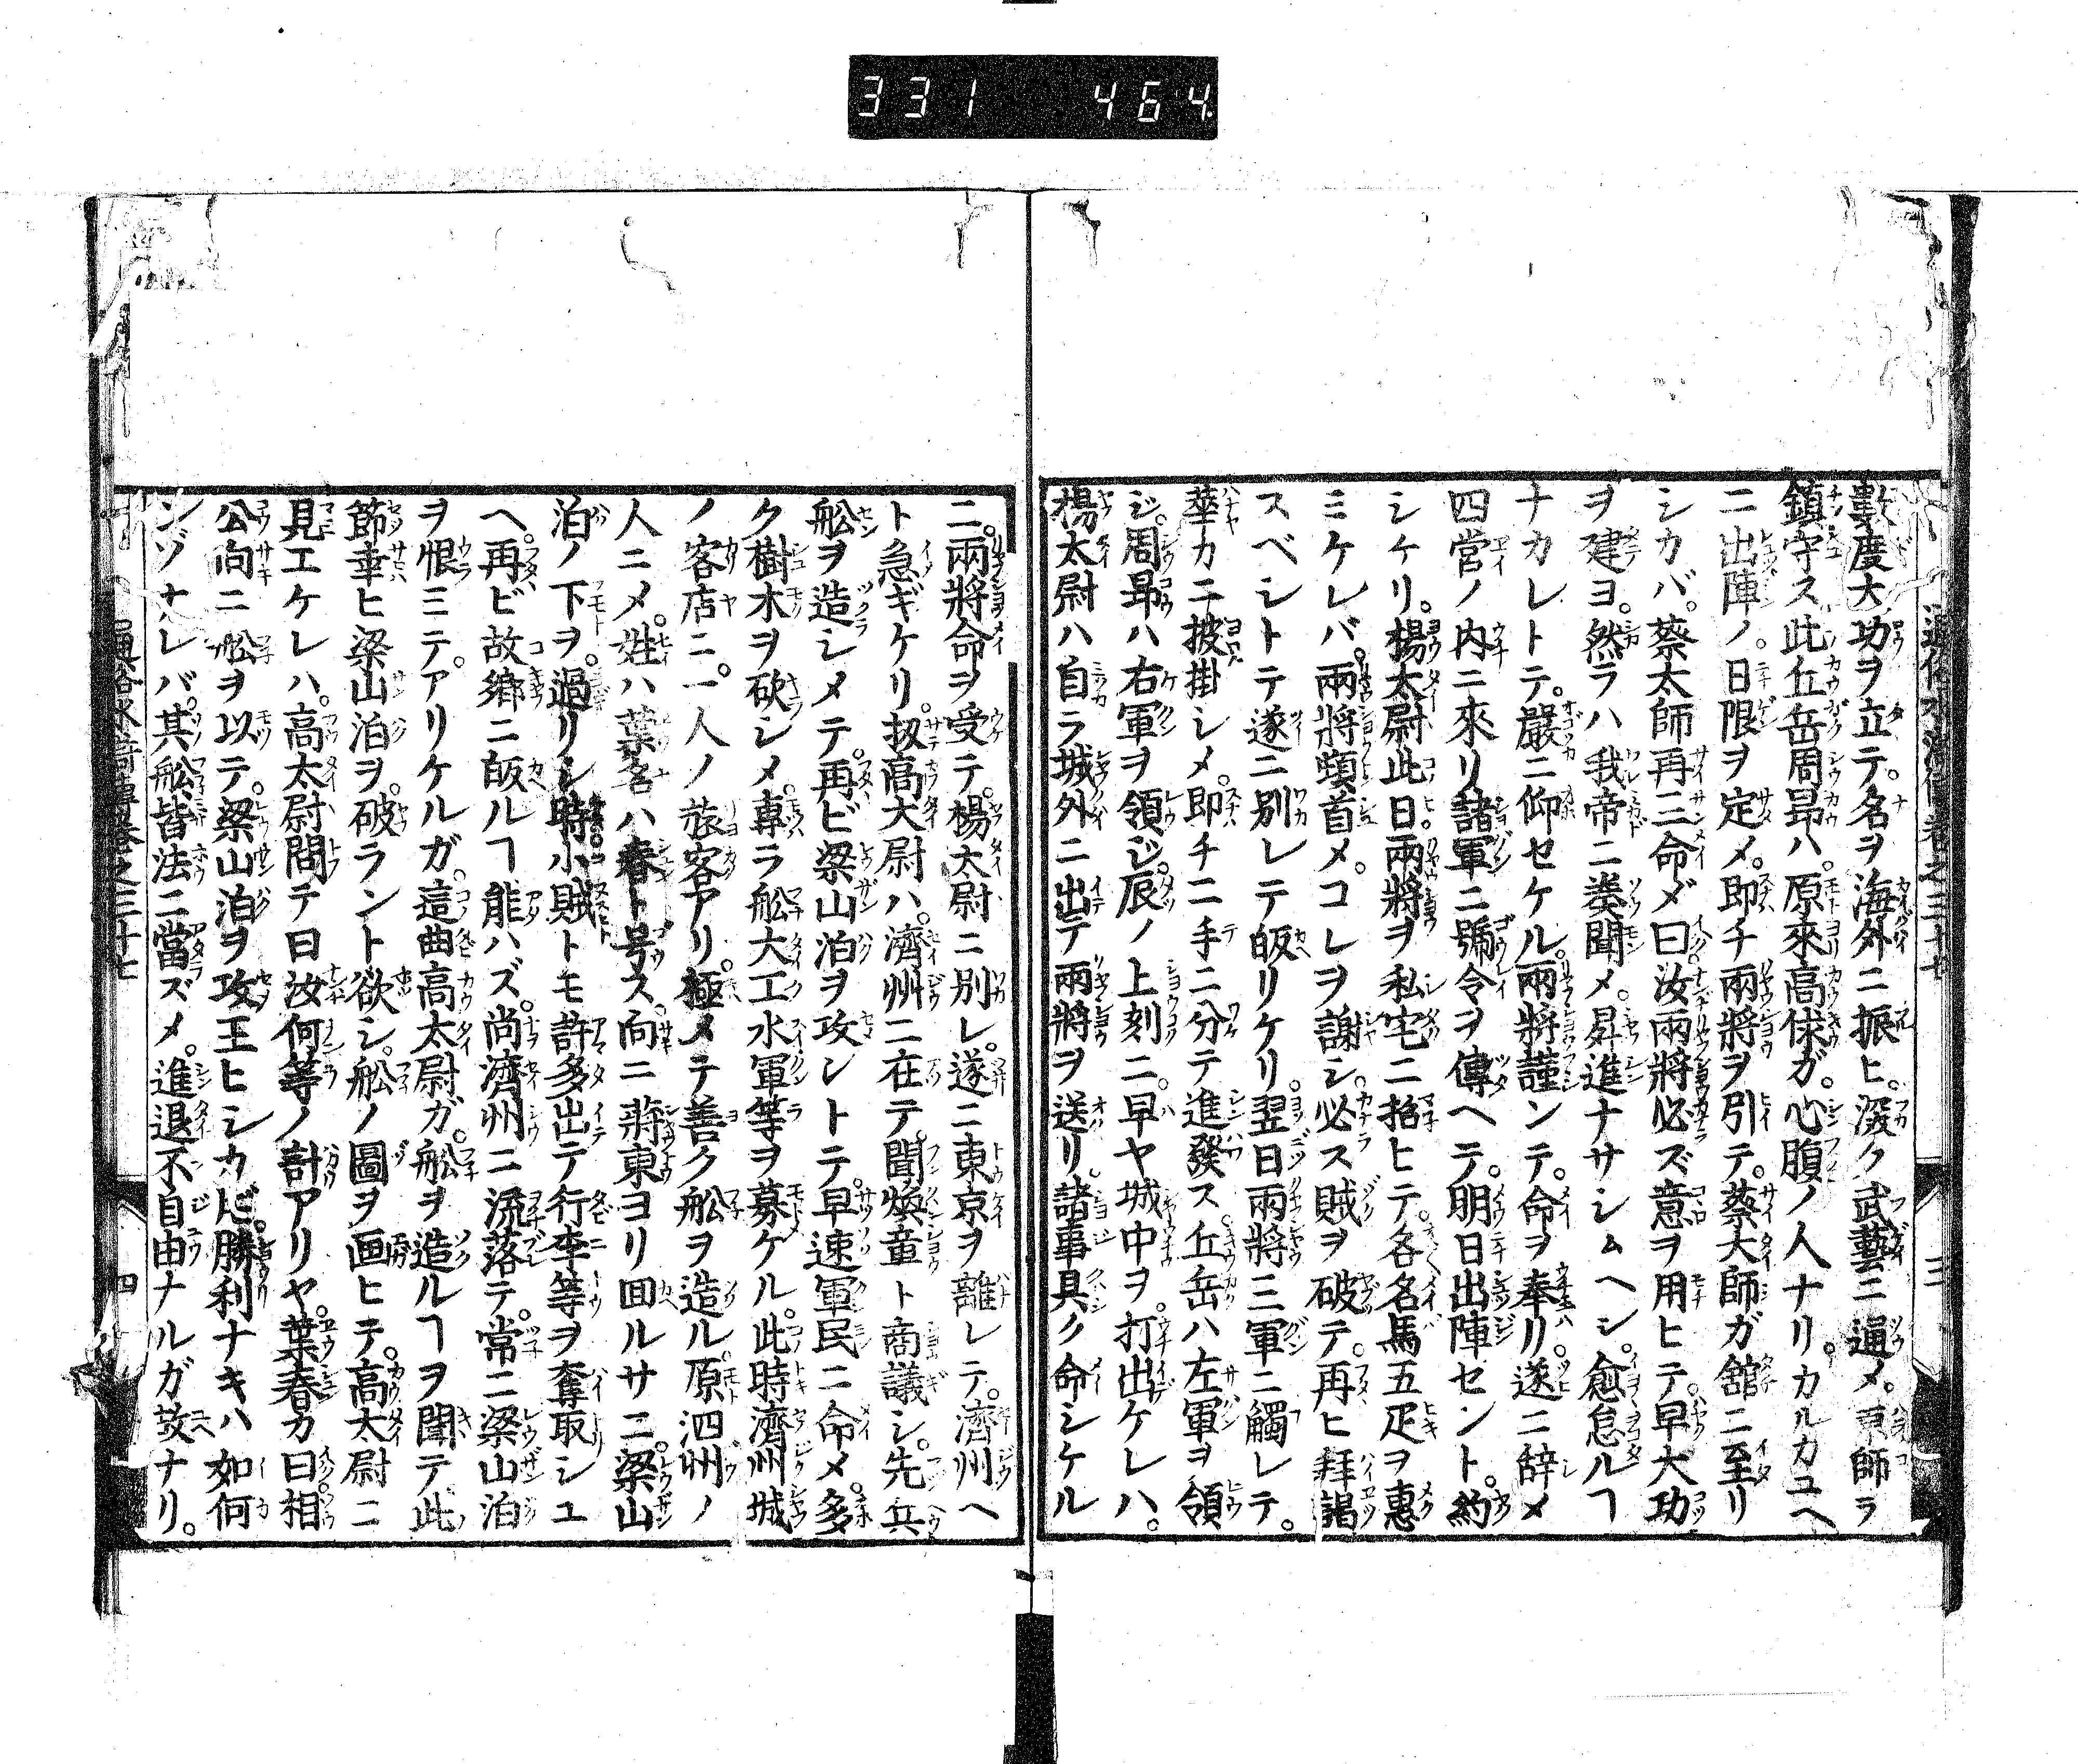 331 464
數度大功ヲ立テ。名ヲ海外ニ振ヒ。深ク武藝ニ通メ。京師ヲ
鎮守ス此丘岳周昻ハ。原來高俅ガ。心腹ノ人ナリ。カルカユヘ
ニ出陣ノ。日限ヲ定メ。即チ兩將ヲ引テ。蔡大師ガ舘ニ至リ
シカバ。蔡太師再三命ダ曰。汝兩將必ズ意ヲ用ヒテ。早大功
ヲ建ヨ。然ラハ我帝ニ奏聞メ。昇進ナサシムヘシ。愈怠ルヿ
ナカレトテ。嚴ニ仰セケル。兩將謹ンテ。命ヲ奉リ。遂ニ辞メ
四營ノ内ニ來リ諸軍ニ號令ヲ傳ヘテ。明日出陣セント。約
シケリ。楊太尉此日。兩將ヲ私宅ニ招ヒテ。各名馬五疋ヲ惠
ミケレバ。兩將頓首メ。コレヲ謝シ。必ス賊ヲ破テ。再ヒ拜謁
スベシトテ遂ニ別レテ皈リケリ。翌日兩將三軍ニ觸レテ。
華カニ披掛シメ。即チ二手ニ分テ進發ス。丘岳ハ左軍ヲ領
ジ。周昻ハ右軍ヲ領ジ。辰ノ上刻ニ。早ヤ城中ヲ。打出ケレハ。
楊太尉ハ自ラ城外ニ出テ兩將ヲ送リ。諸事具ク命シケル
通俗水滸傳卷之三十七 三
ニ。兩將命ヲ受テ。楊太尉ニ別レ。遂ニ東京ヲ離レテ。濟州ヘ
ト急ギケリ。扨高大尉ハ。濟州ニ在テ。聞煥章ト商議シ。先兵
舩ヲ造シメテ。再ビ梁山泊ヲ攻レトテ。早速軍民ニ命メ。多
ク樹木ヲ砍シメ。專ラ舩大工水軍等ヲ募ケル。此時濟州城
ノ客店ニ。一人ノ旅客アリ。極メテ善ク舩ヲ造ル。原泗州ノ
人ニメ。姓ハ葉名ハ春ト号ス。向ニ蔣東ヨリ囬ルサニ。梁山
泊ノ下ヲ。過リシ時。小賊トモ許多出テ行李等ヲ奪取シユ
ヘ。再ビ故鄕ニ皈ルヿ能ハズ。尚濟州ニ流落テ。常ニ梁山泊
ヲ恨ミテアリケルガ。這曲高太尉ガ。舩ヲ造ルヿヲ聞テ此
節幸ヒ梁山泊ヲ。破ラント欲シ。舩ノ圖ヲ画ヒテ。高太尉ニ
見エケレハ。高太尉問テ曰汝何等ノ計アリヤ。葉春カ曰相
公向ニ舩ヲ以テ。梁山泊ヲ攻玉ヒシカ𪜈。勝利ナキハ如何
ンゾナレバ。其舩皆法ニ當ズメ。進退不自由ナルガ故ナリ。
通俗水滸傳卷之三十七 四